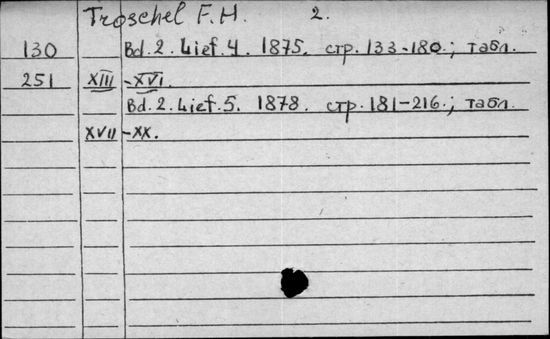 Troschel F. H. 2.
130 Bd. 2. Lief. 4. 1875. стр. 133-180.; табл.
251 XIII-XVI.
Bd. 2. Lief. 5. 1878. стр. 181-216.; табл.
XVII-XX.